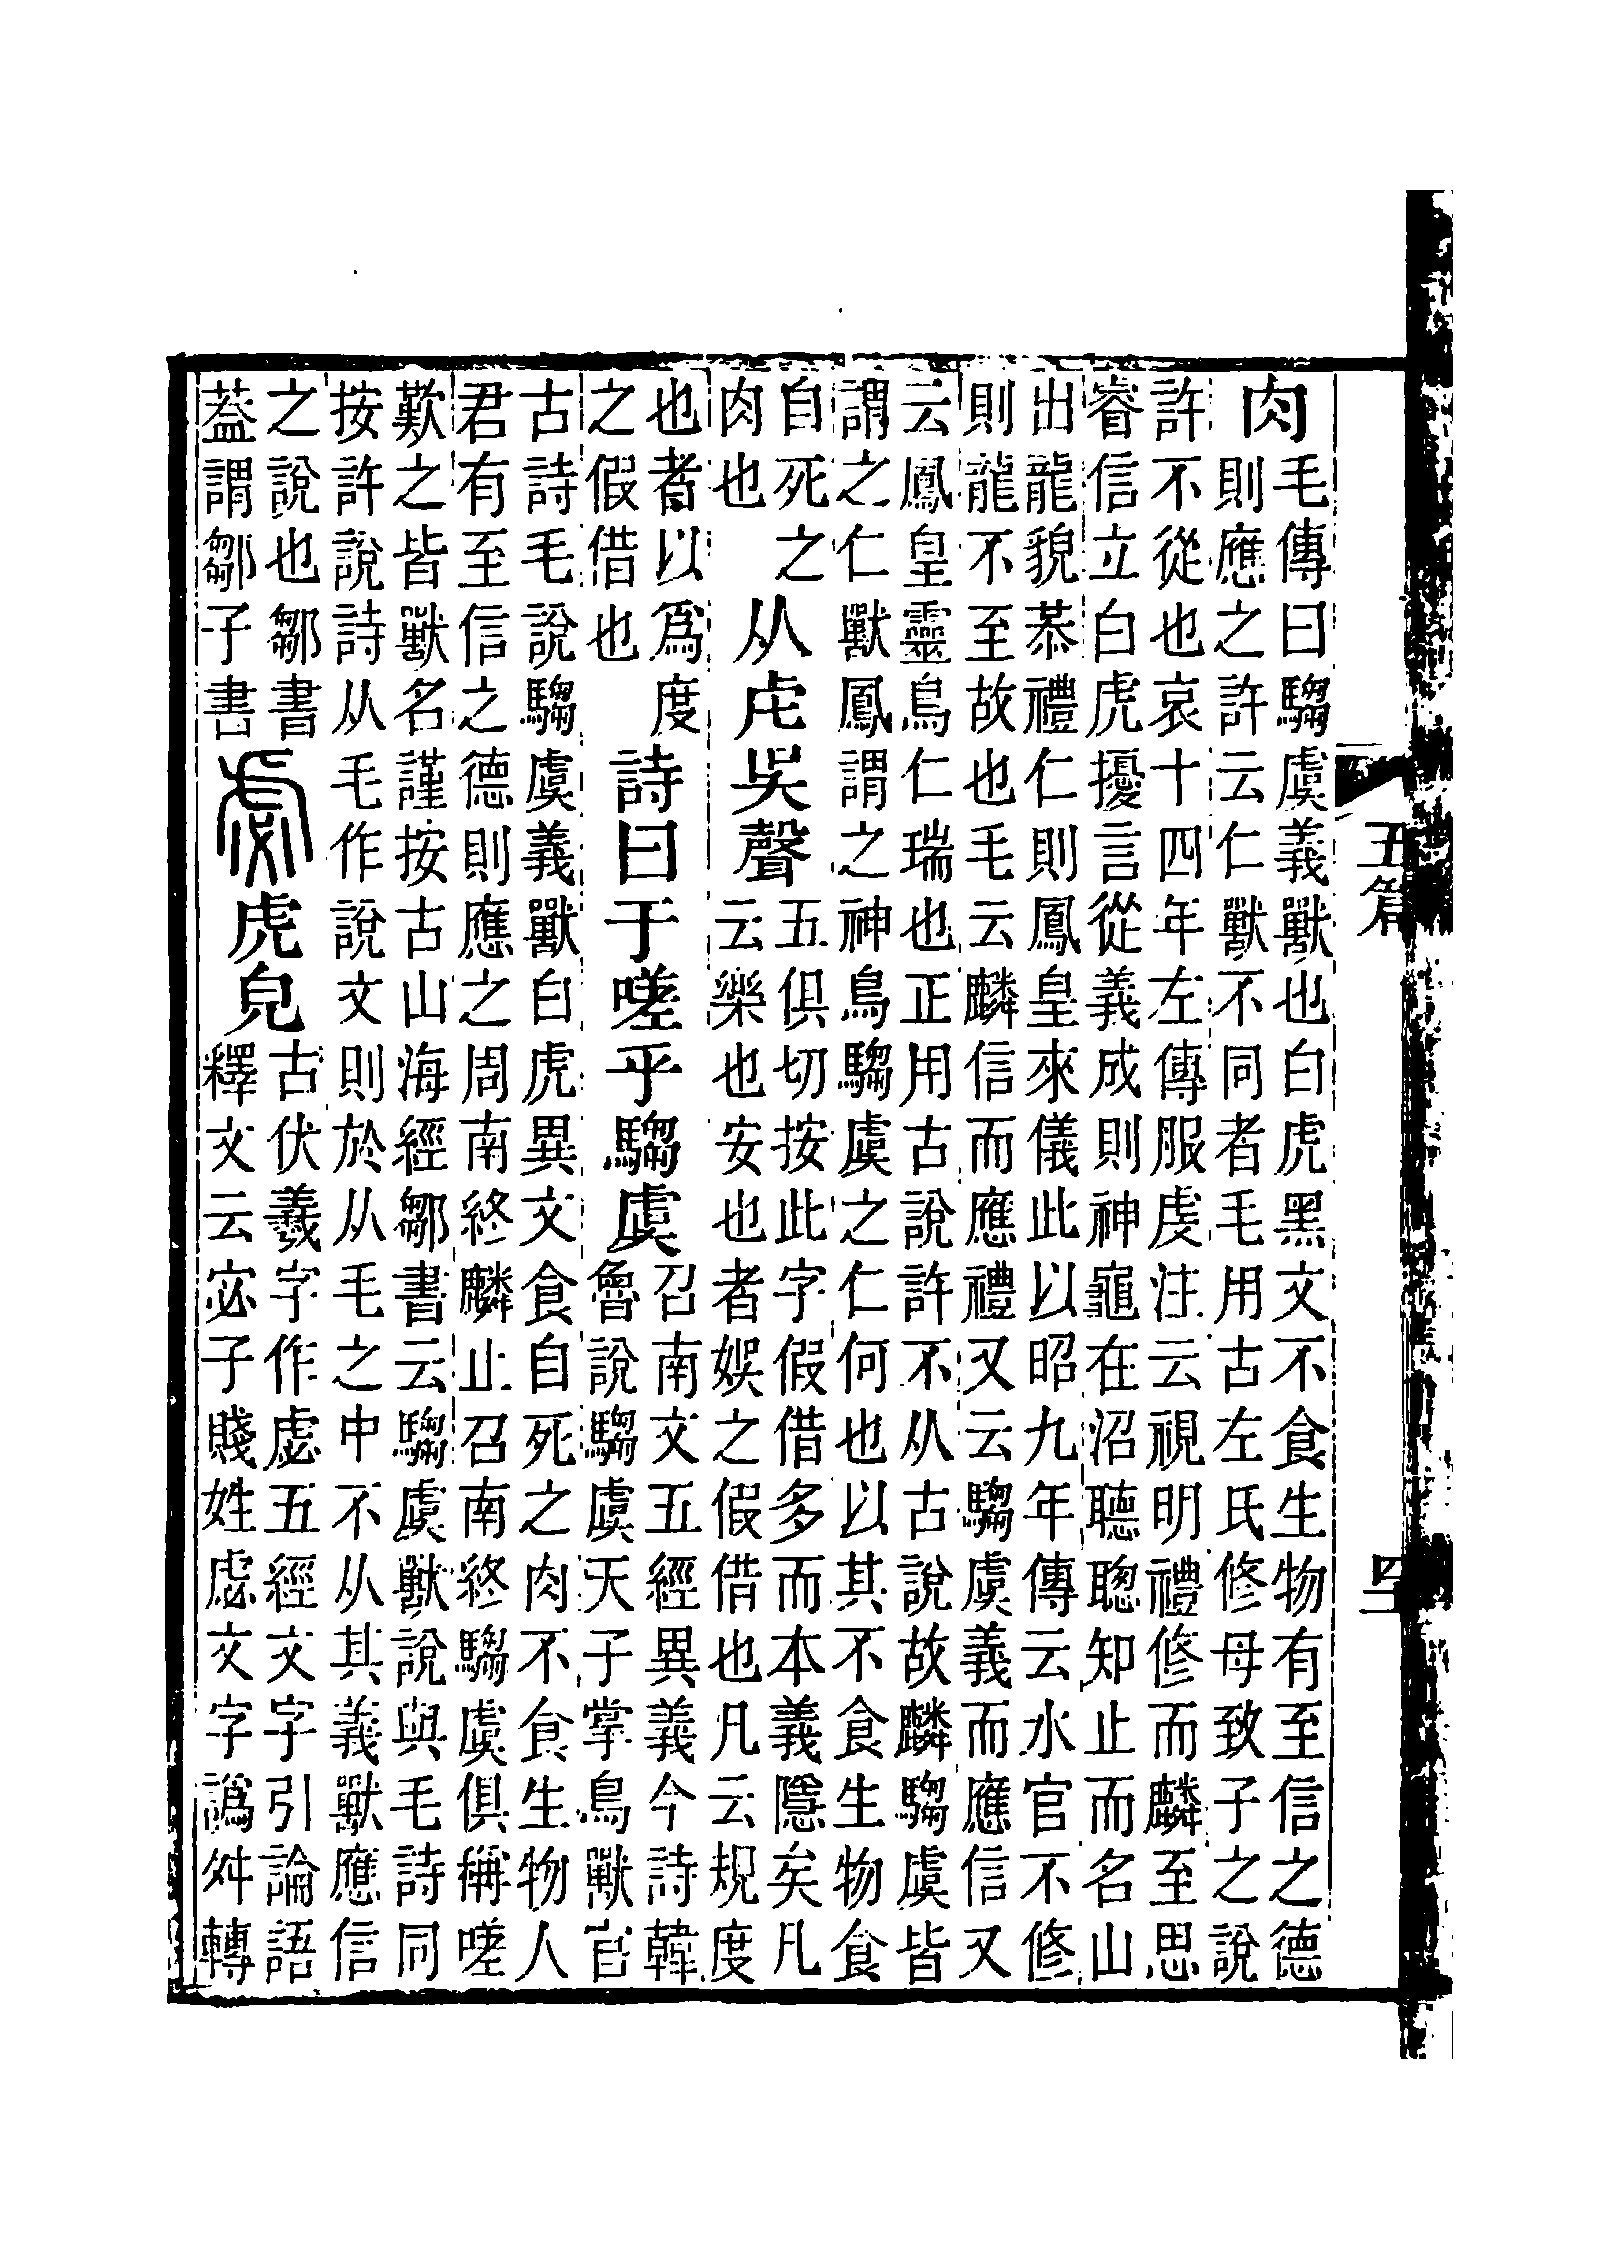 五篇
肉毛傳曰騶虞義獸也白虎黑文不食生物有至信之德
則應之許云仁獸不同者毛用古左氏修母致子之說
許不從也哀十四年左傳服虔注云視明禮修而麟至思
睿信立白虎擾言從義成則神龜在沼聽聰知止而名山
出龍貌恭禮仁則鳳皇來儀此以昭九年傳云水官不修
則龍不至故也毛云麟信而應禮又云騶虞義而應信又
云鳳皇靈鳥仁瑞也正用古說許不从古說故麟騶虞皆
謂之仁獸鳳謂之神鳥騶虞之仁何也以其不食生物食
自死之
肉也
从虍吳聲
五俱切按此字假借多而本義隱矣凡
云樂也安也者娛之假借也凡云規度
也者以爲度
之假借也
詩曰于嗟乎騶虞
召南文五經異義今詩韓
魯說騶虞天子掌鳥獸官
古詩毛說騶虞義獸白虎異文食自死之肉不食生物人
君有至信之德則應之周南終麟止召南終騶虞俱稱嗟
歎之皆獸名謹按古山海經鄒書云騶虞獸說與毛詩同
按許說詩从毛作說文則於从毛之中不从其義獸應信
之說也鄒書
葢謂鄒子書
虙虎皃
古伏羲字作虙五經文字引論語
釋文云宓子賤姓虙文字譌舛轉